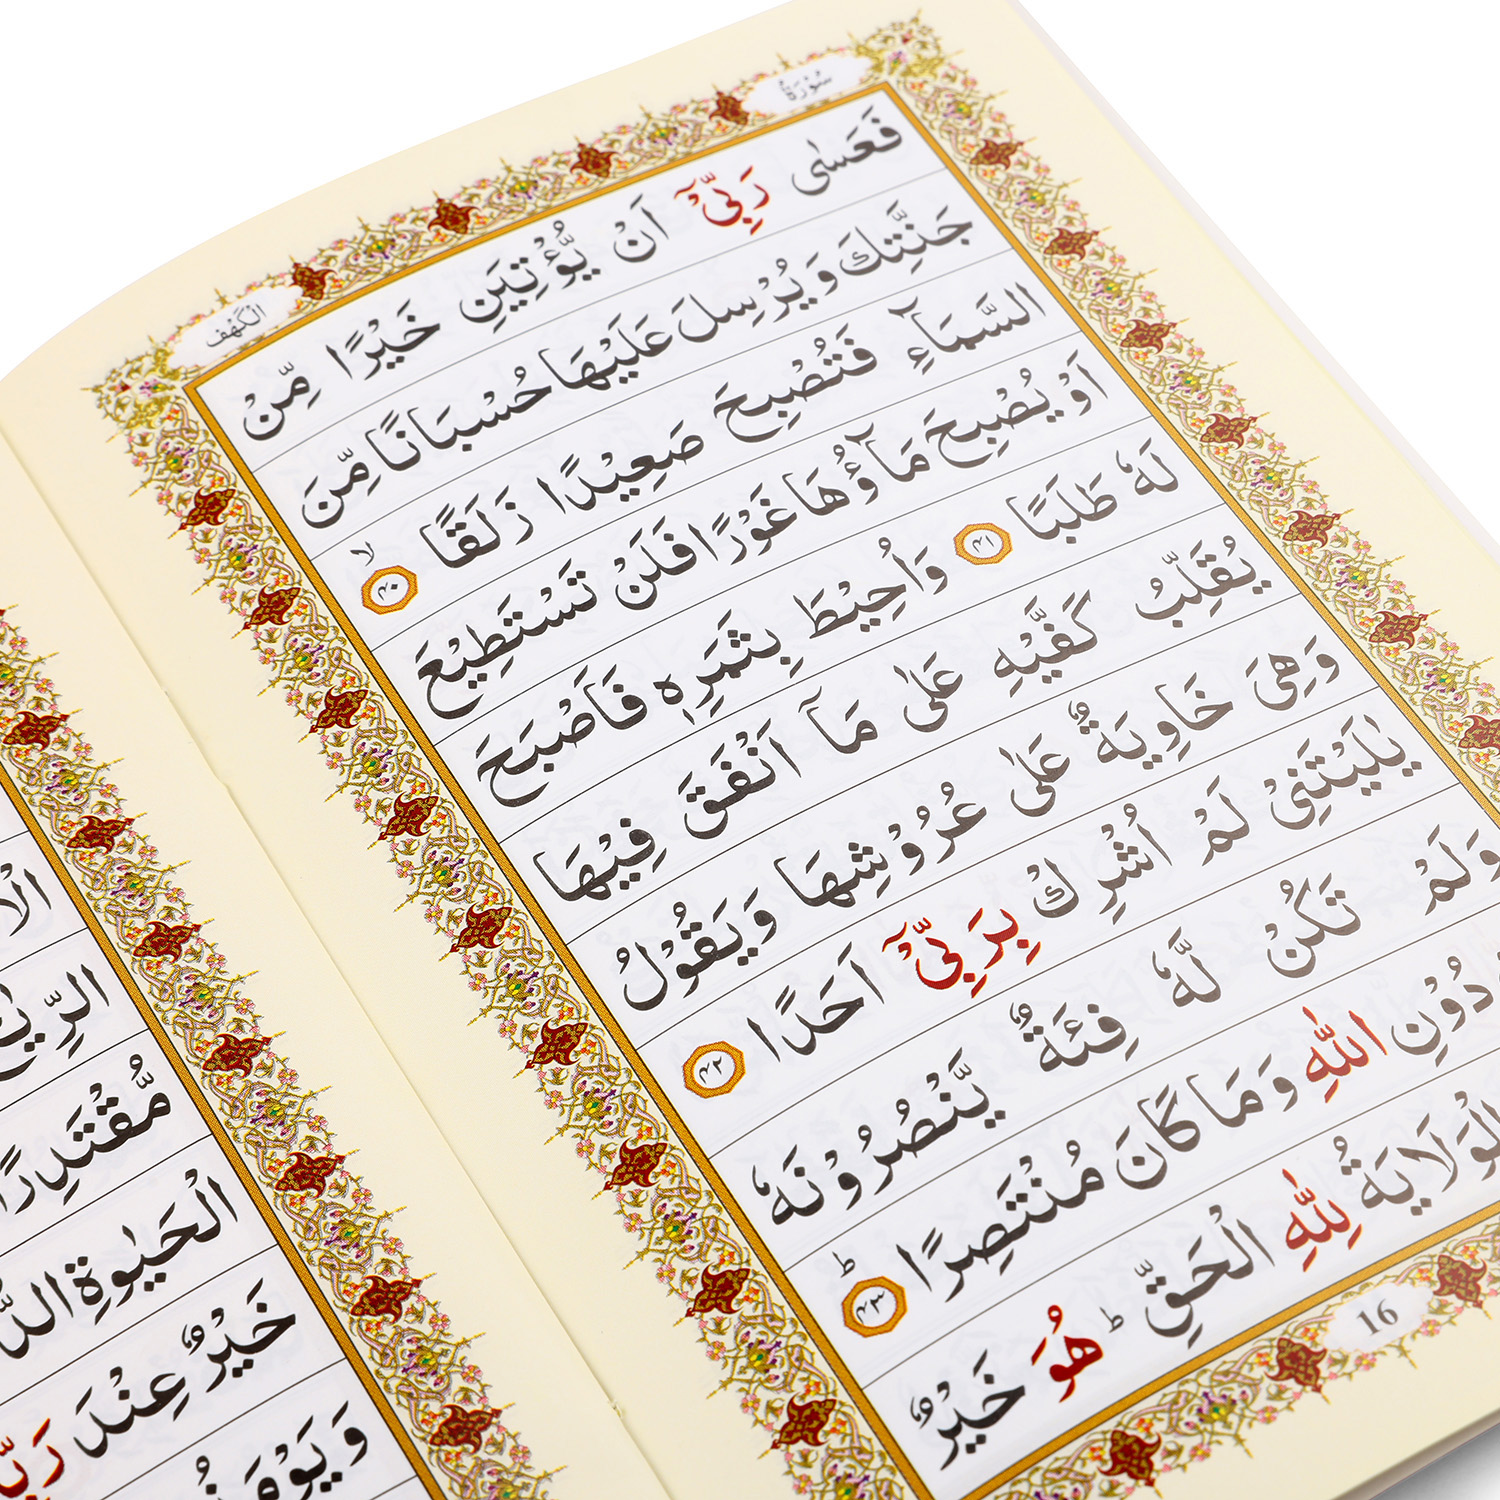 سُوۡرَةُ
الۡكَهۡف
فَعَسٰى رَبِّىۡۤ اَنۡ يُّؤۡتِيَنِ خَيۡرًا مِّنۡ
جَنَّتِكَ وَيُرۡسِلَ عَلَيۡهَا حُسۡبَانًا مِّنَ
السَّمَآءِ فَتُصۡبِحَ صَعِيۡدًا زَلَقًا ۙ‏ ﴿۴۰﴾
اَوۡ يُصۡبِحَ مَآؤُهَا غَوۡرًا فَلَنۡ تَسۡتَطِيۡعَ
لَهٗ طَلَبًا ﴿۴۱﴾ وَاُحِيۡطَ بِثَمَرِهٖ فَاَصۡبَحَ
يُقَلِّبُ كَفَّيۡهِ عَلٰى مَاۤ اَنۡفَقَ فِيۡهَا
وَهِىَ خَاوِيَةٌ عَلٰى عُرُوۡشِهَا وَيَقُوۡلُ
يٰلَيۡتَنِىۡ لَمۡ اُشۡرِكۡ بِرَبِّىۡۤ اَحَدًا ﴿۴۲﴾
وَلَمۡ تَكُنۡ لَّهٗ فِئَةٌ يَّنۡصُرُوۡنَهٗ
دُوۡنِ اللّٰهِ وَمَا كَانَ مُنۡتَصِرًا ؕ ﴿۴۳﴾
الۡوَلَايَةُ لِلّٰهِ الۡحَقِّ ؕ هُوَ خَيۡرٌ
16
الرِّيٰحُ
مُّقۡتَدِرًا
الۡحَيٰوةِ
خَيۡرٌ عِنۡدَ
وَيَوۡمَ